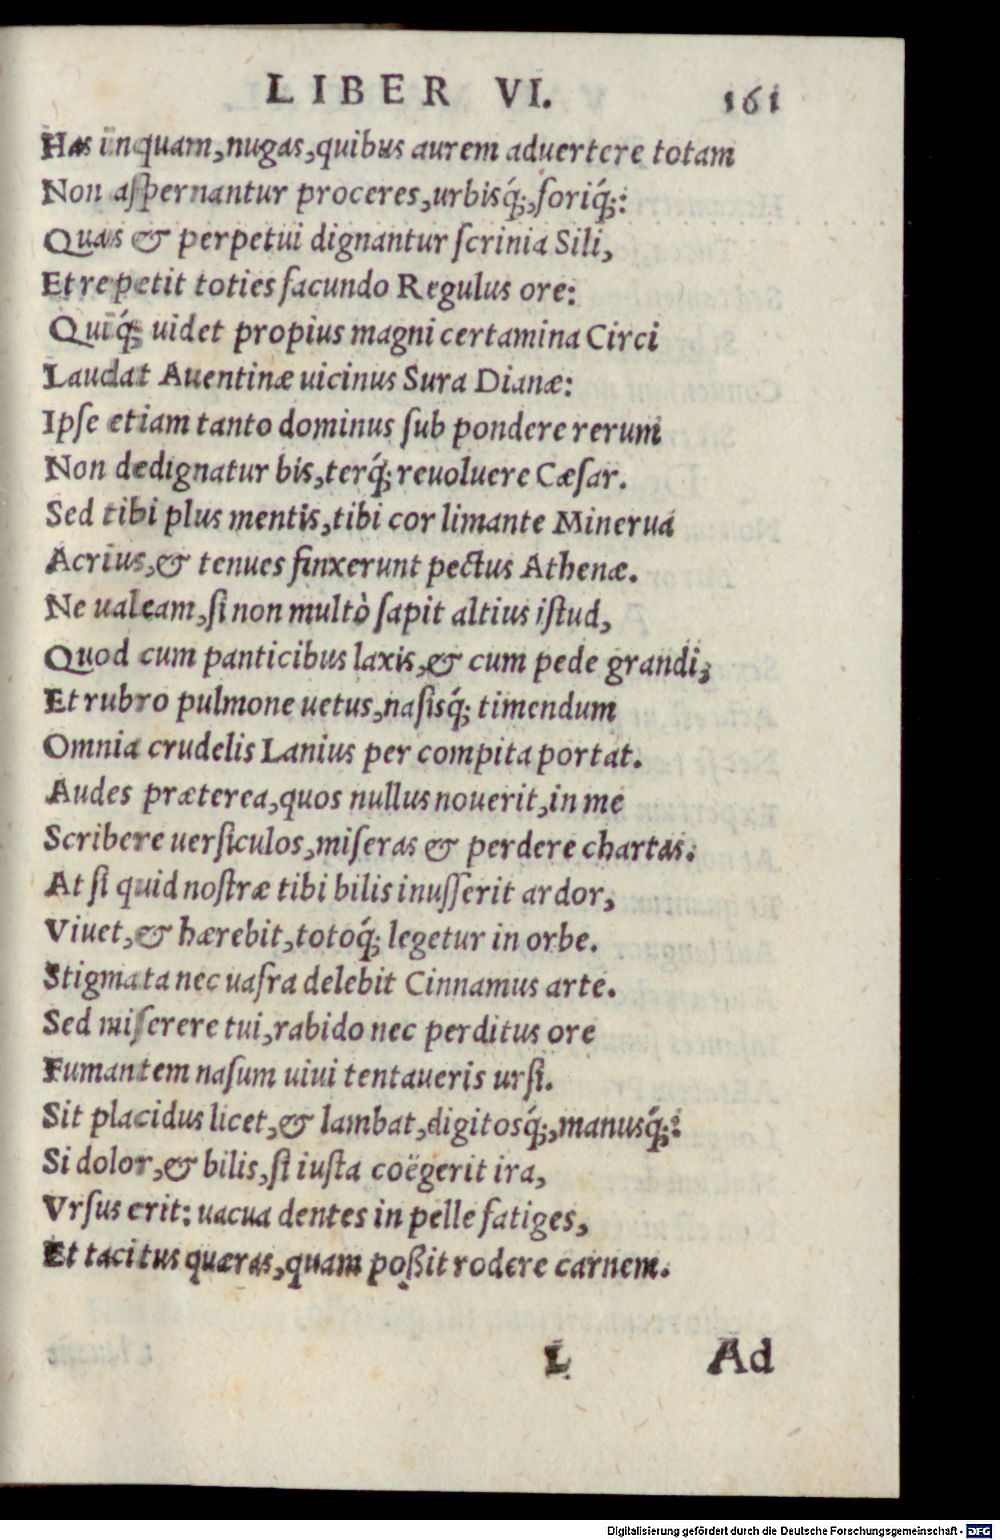 LIBER VI. 161
Has inquam, nugas, quibus aurem aduertere totam
Non aſpernantur proceres, urbisq́;, foriq́;:
Quas & perpetui dignantur ſcrinia Sili,
Et repetit toties facundo Regulus ore:
Quiq́; uidet propius magni certamina Circi
Laudat Auentinæ uicinus Sura Dianæ:
Ipſe etiam tanto dominus ſub pondere rerum
Non dedignatur bis, terq́; reuoluere Cæſar.
Sed tibi plus mentis, tibi cor limante Minerua
Acrius, & tenues finxerunt pectus Athenæ.
Ne ualeam, ſi non multò ſapit altius iſtud,
Quod cum panticibus laxis, & cum pede grandi,
Et rubro pulmone uetus, naſisq́; timendum
Omnia crudelis Lanius per compita portat.
Audes præterea, quos nullus nouerit, in me
Scribere uerſiculos, miſeras & perdere chartas.
At ſi quid noſtræ tibi bilis inuſſerit ardor,
Viuet, & hærebit, totoq́; legetur in orbe.
Stigmata nec uafra delebit Cinnamus arte.
Sed miſerere tui, rabido nec perditus ore
Fumantem naſum uiui tentaueris urſi.
Sit placidus licet, & lambat, digitosq́;, manusq́;:
Si dolor, & bilis, ſi iuſta coëgerit ira,
Vrſus erit: uacua dentes in pelle fatiges,
Et tacitus quæras, quam poßit rodere carnem.
L Ad
Digitalisierung gefördert durch die Deutsche Forschungsgemeinschaft - DFG